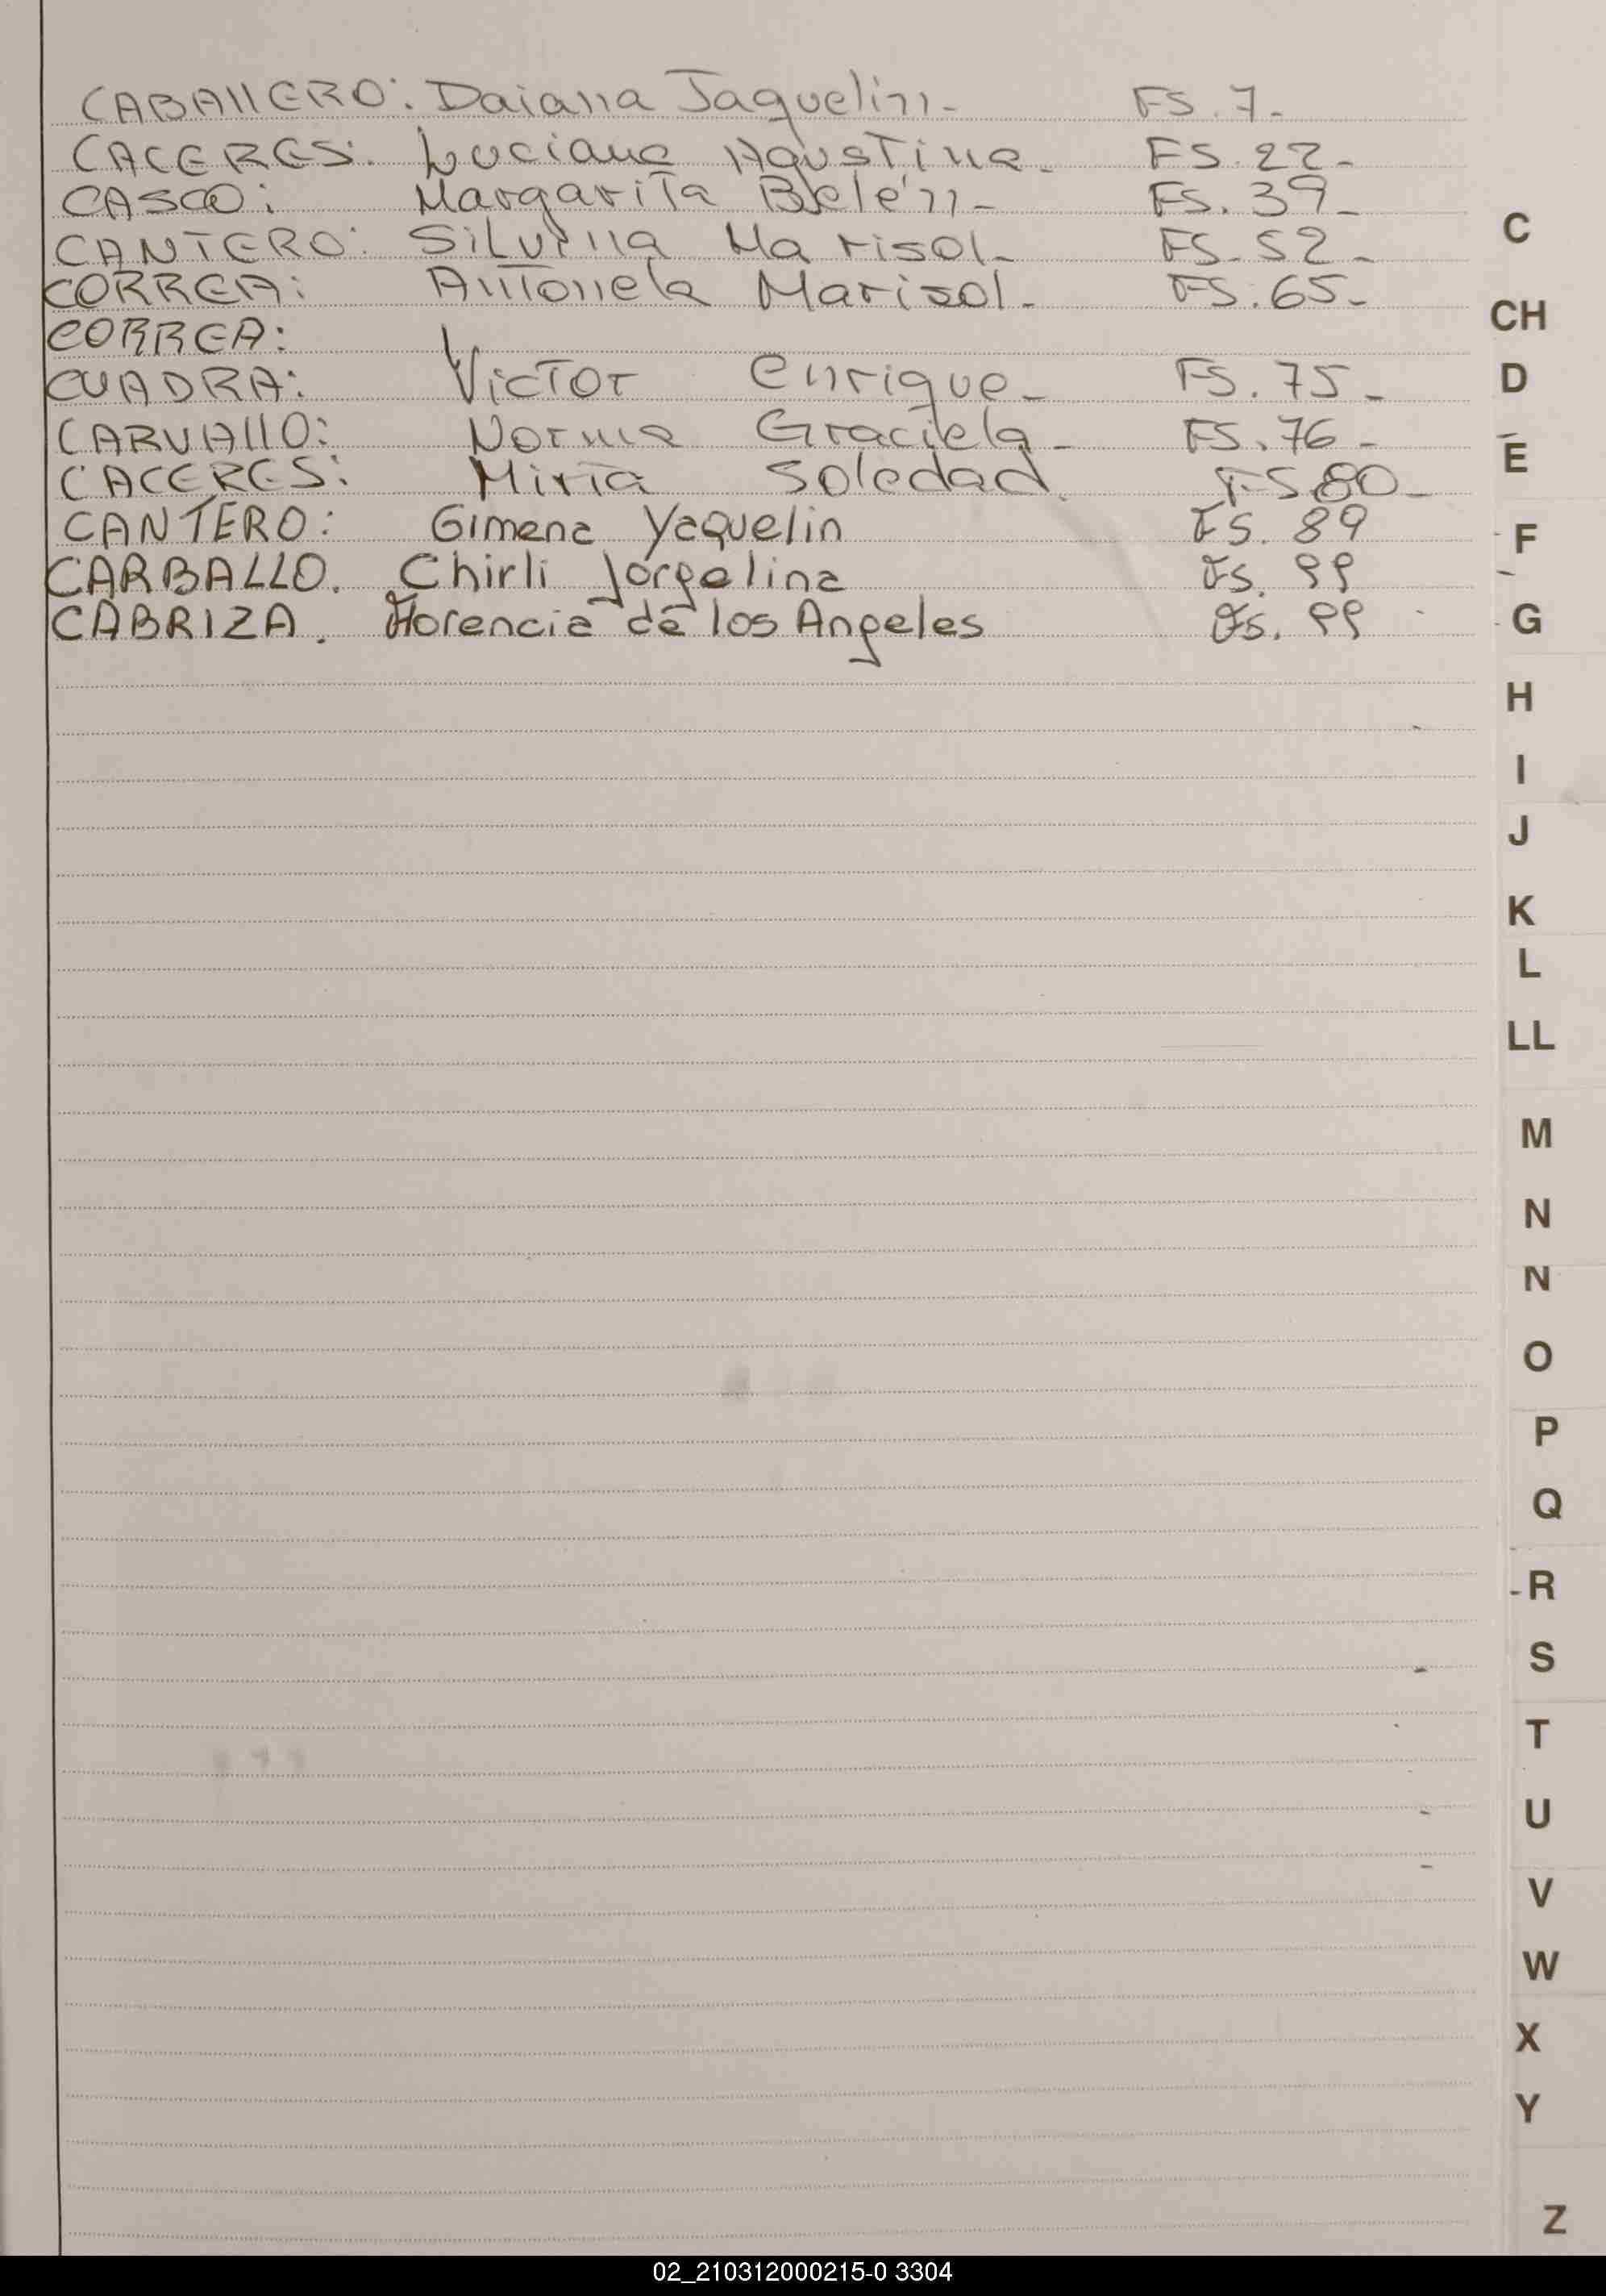 CABAllERO: Daiana Jaquelin- FS. 7-
CACERES: Luciana Agustina- FS. 22-
CASCO: Margarita Belén- FS. 39-
CANTERO: Silvina Marisol- FS. 52-
CORREA: Antonela Marisol- FS. 65-
CORREA:
CUADRA: Victor Enrique- FS. 75-
CARVAllO: Norma Graciela- FS. 76-
CACERES: Mirta Soledad. FS 80-
CANTERO: Gimena Yaquelin FS. 89
CARBALLO. Chirli Jorgelina Fs. 99
CABRIZA. Florencia de los Angeles Fs. 99
C
CH
D
E
F
G
H
I
J
K
L
LL
M
N
N
O
P
Q
R
S
T
U
V
W
X
Y
Z
02_210312000215-0 3304